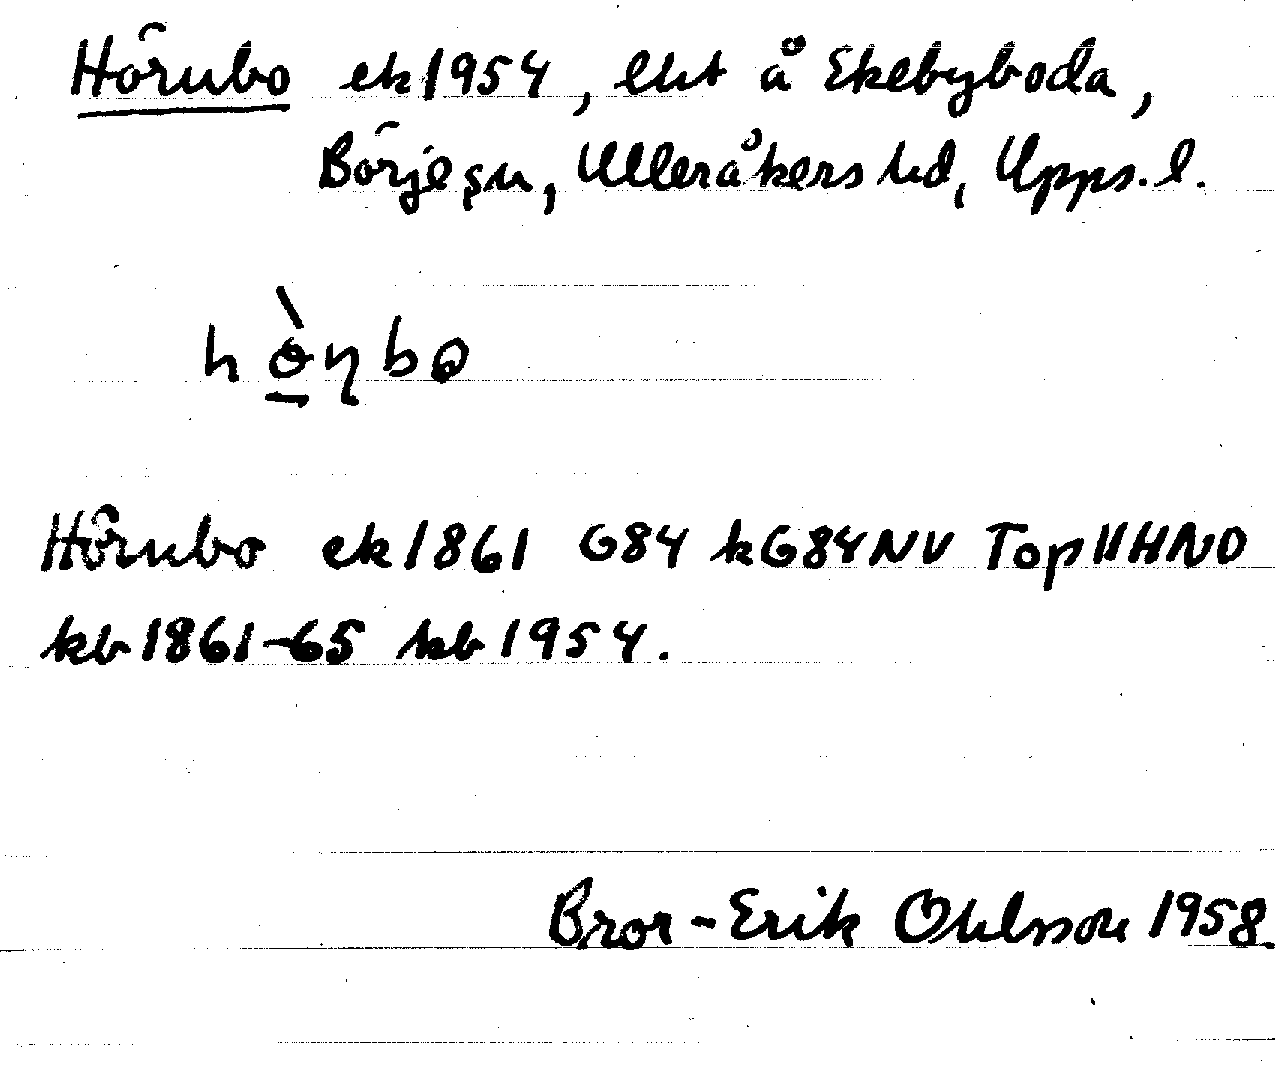 Hörnbo ek 1954, lht å Ekebyboda,
Börje sn, Ulleråkers hd, Upps. l.
Hörnbo ek 1861 G84 kG84NV Top11HNO
kb 1861-65 hb 1954.
Bror-Erik Ohlsson 1958.